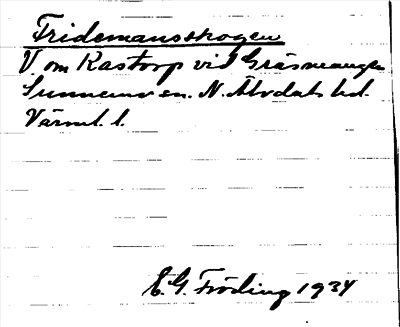 Fridemansskogen
V om Kastorp vid Gräsmangen
Sunnemo sn. N. Älvdals hd.
Värml. l.
E. G. Fröding 1934